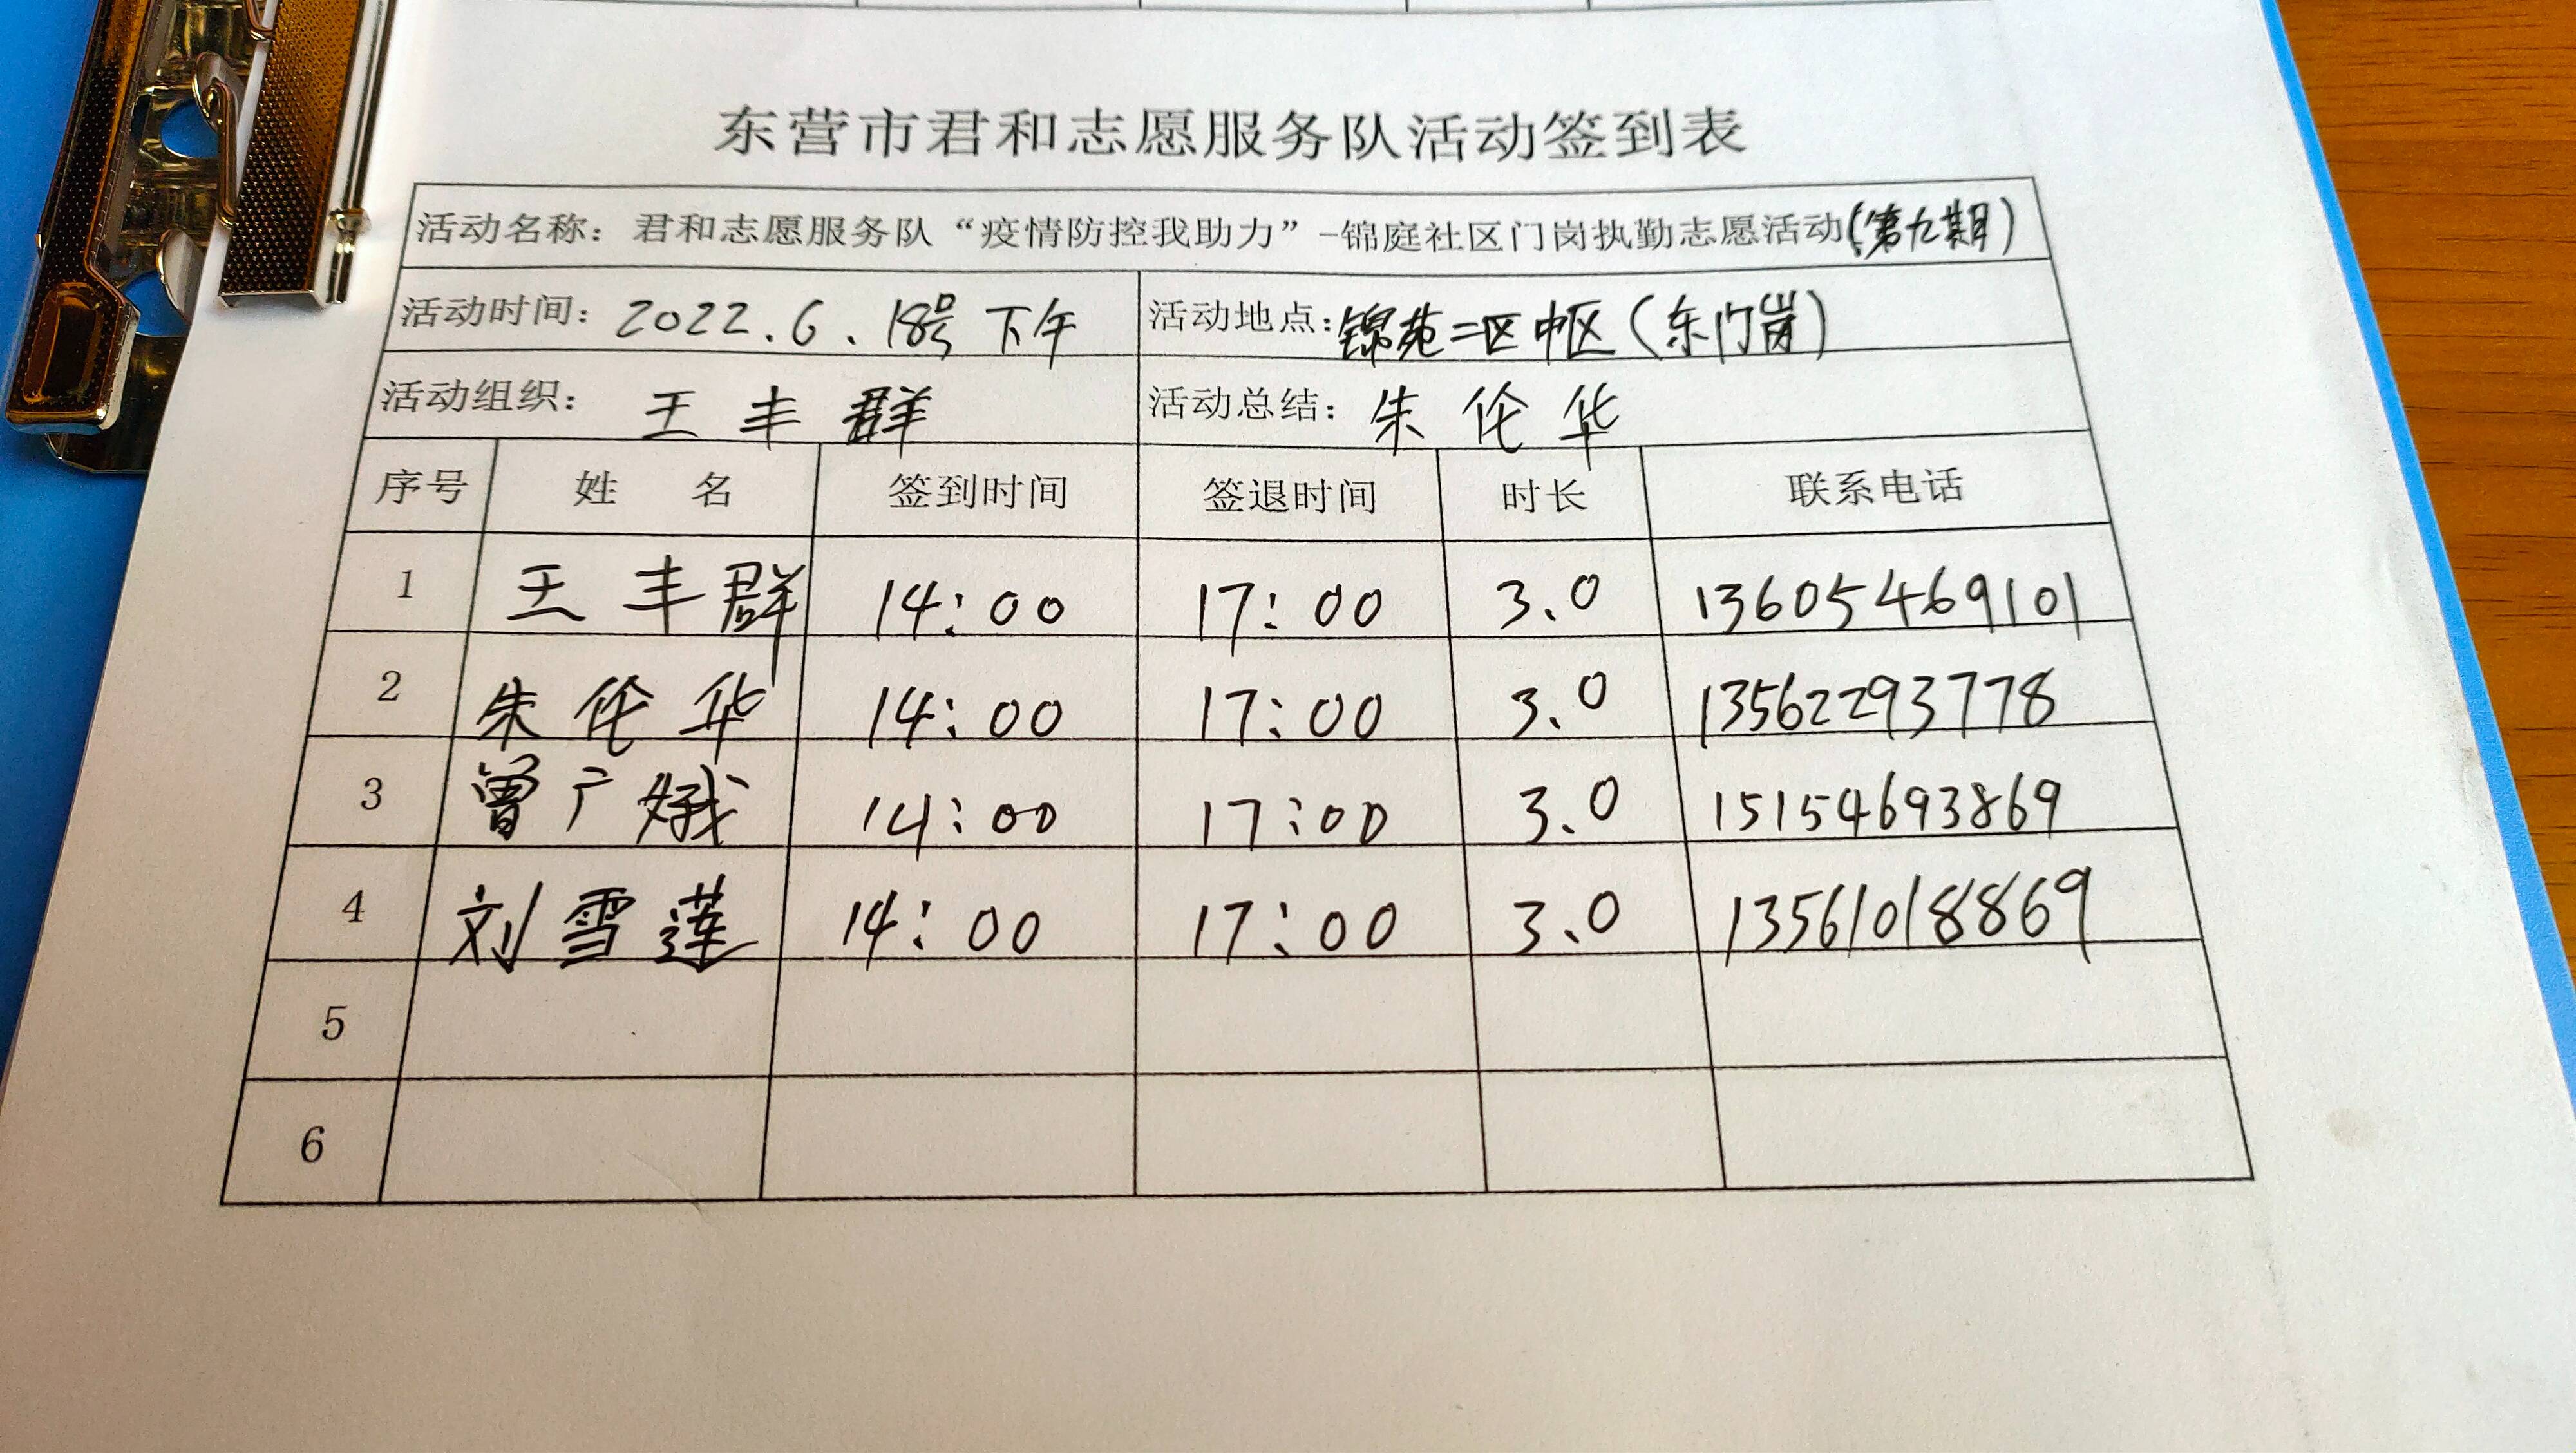 东营市君和志愿服务队活动签到表
活动名称：君和志愿服务队“疫情防控我助力”-锦庭社区门岗执勤志愿活动(第九期)
活动时间：2022.6.18号下午 活动地点：锦苑二区中区(东门岗)
活动组织：王丰群 活动总结：朱伦华
序号 姓名 签到时间 签退时间 时长 联系电话
1 王丰群 14:00 17:00 3.0 13605469101
2 朱伦华 14:00 17:00 3.0 13562293778
3 曾广娥 14:00 17:00 3.0 15154693869
4 刘雪莲 14:00 17:00 3.0 13561018869
5
6